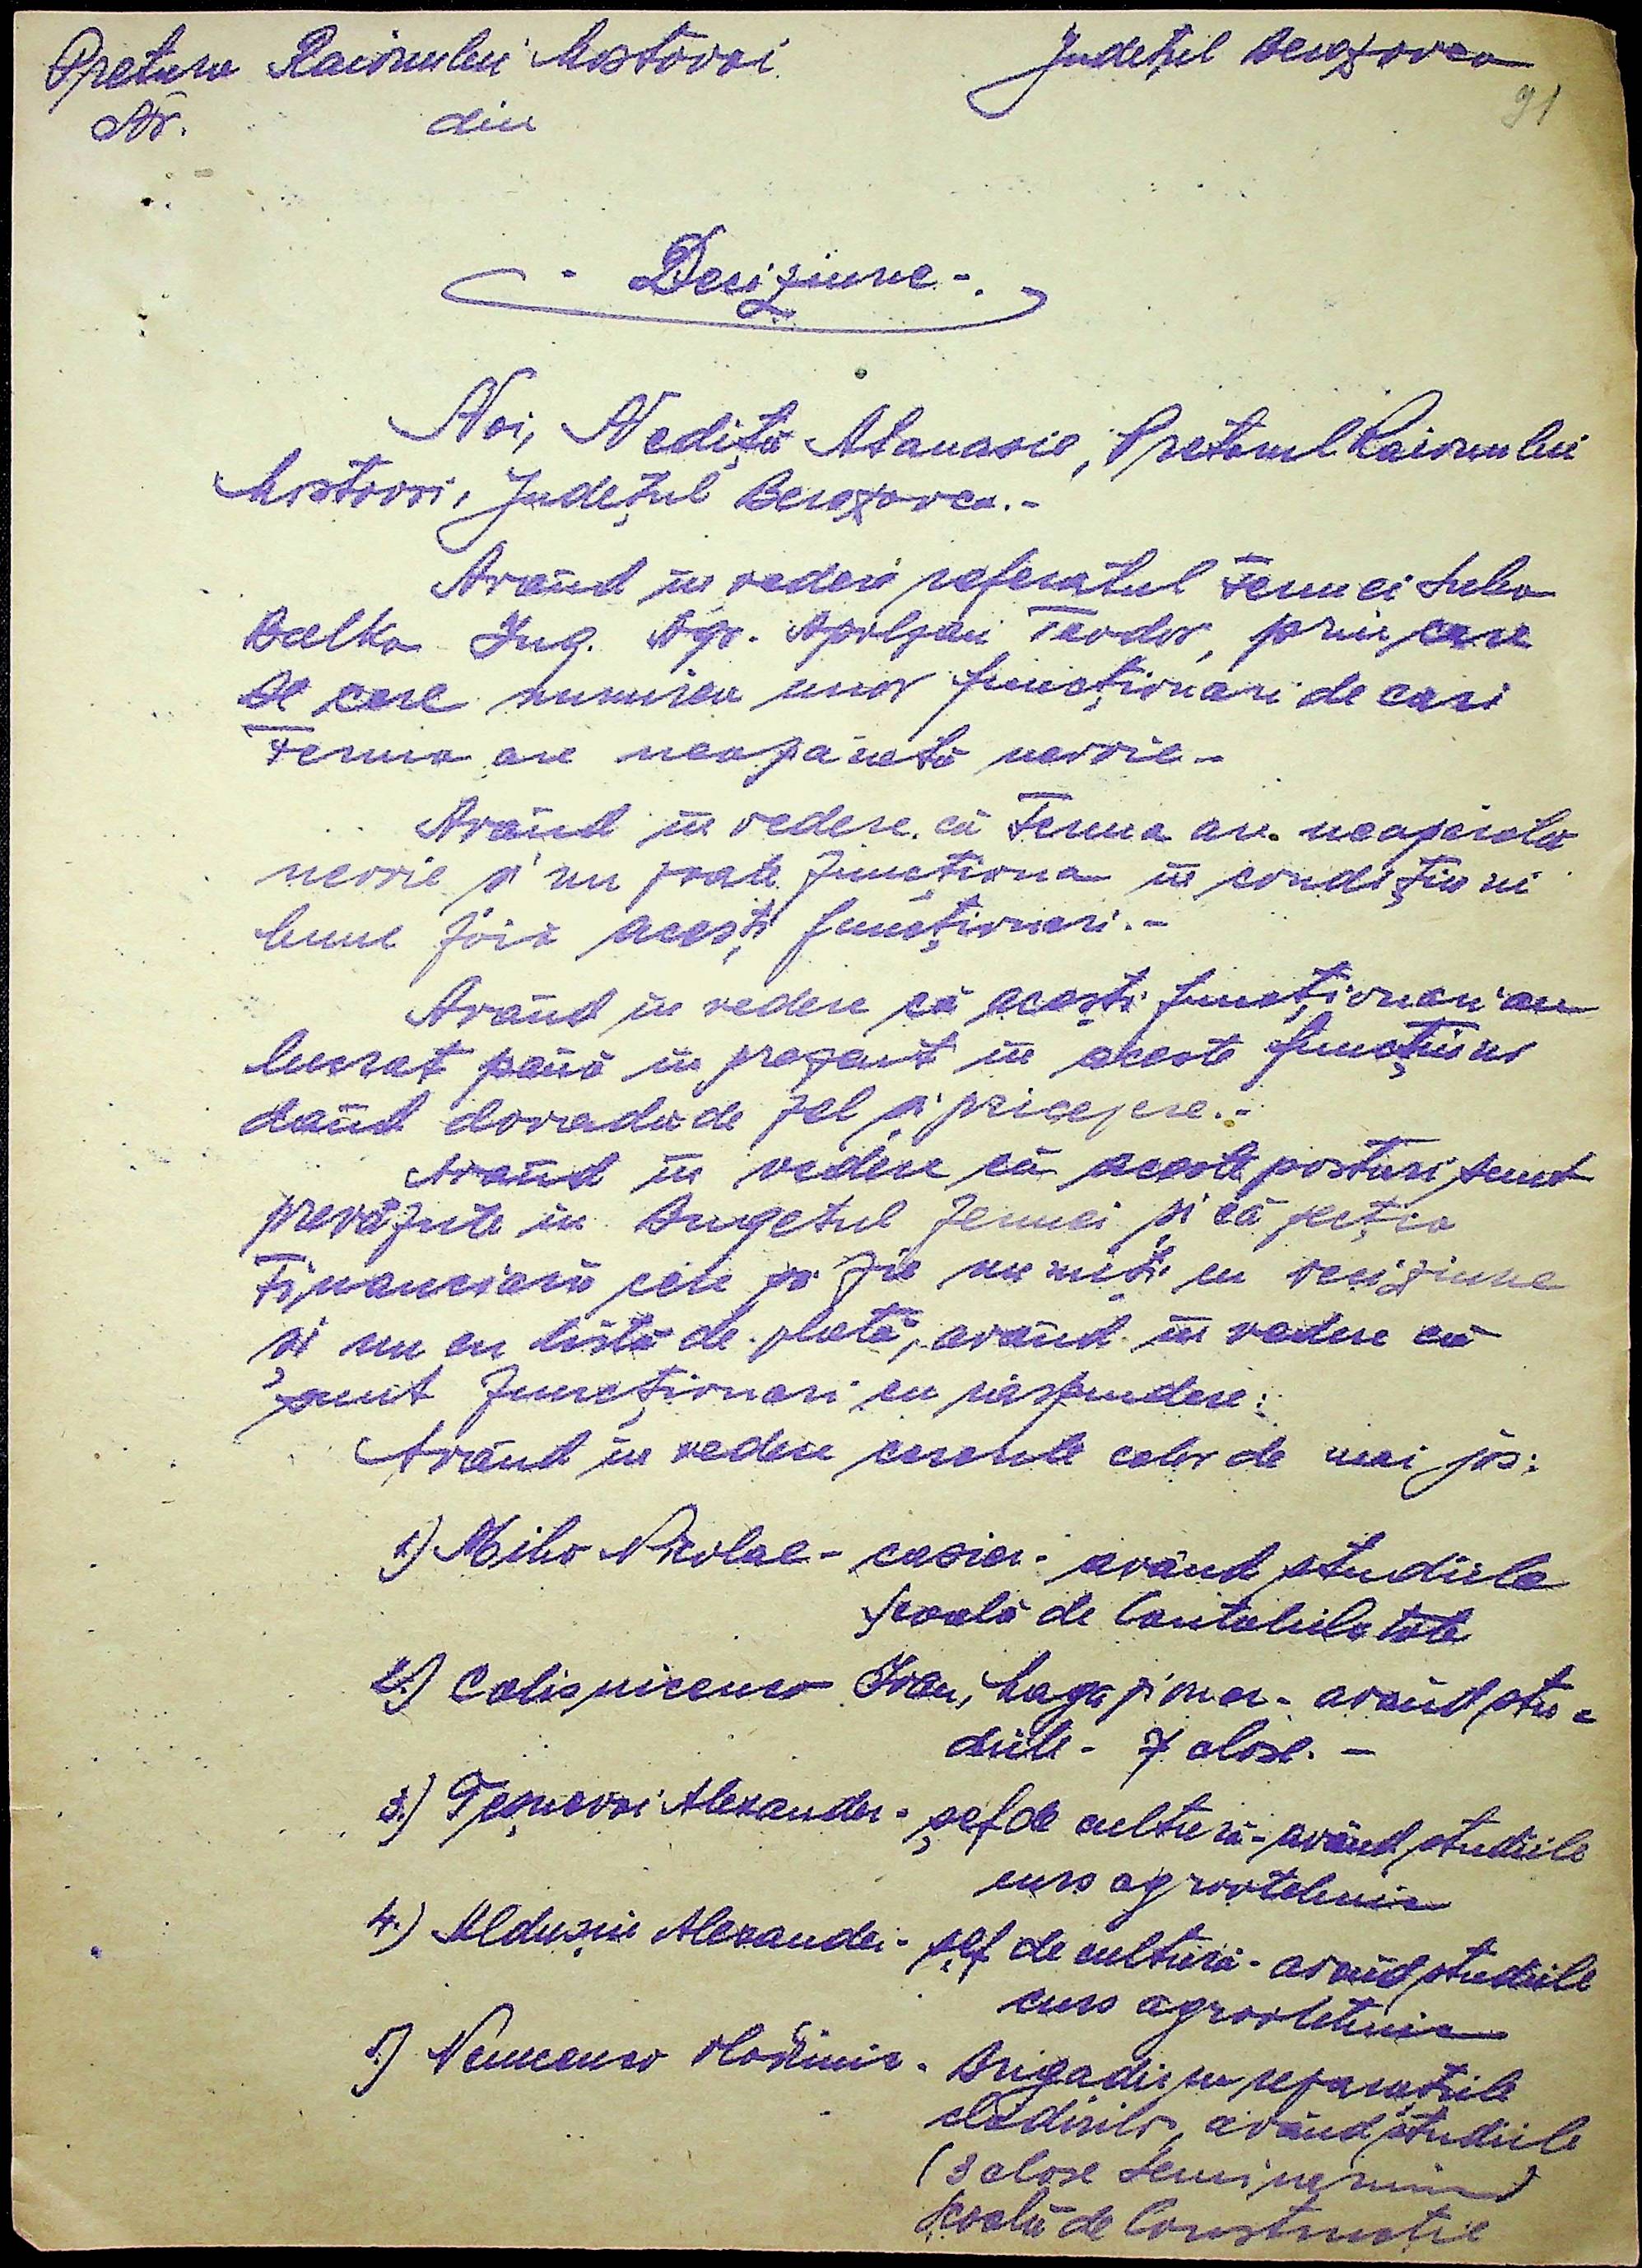 Pretura Raionului Mostovoi Judeţul Berezovca
91
Nr. din
- Deciziune -.
Noi, Nediţă Atanasie, Pretorul Raionului
Mostovoi, Judeţul Berezovca.-
Având în vedere referatul Fermei
Balka Ing. Agr. Teodor, prin care
se cere numirea unor funcţionari de cari
Ferma are neapărată nevoie.-
Având în vedere că Ferma are neapărată
nevoie şi nu poate funcţiona în condiţiuni
bune fără aceşti funcţionari.-
Având în vedere că aceşti funcţionari au
lucrat până în prezent în aceste funcţiuni
dând dovadă de zel şi pricepere.-
Având în vedere că aceste posturi sunt
prevăzute în Bugetul Fermei şi că secţia
Financiară cere să fie numiţi cu deciziune
şi nu cu listă de plată, având în vedere că
sunt funcţionari cu răspundere:
Având în vedere cererile celor de mai jos:
1.) Miho Nicolae - casier - având studiile
Şcoala de Contabilitate
2.) Ivan, Magaziner - având stu-
diile - 7 clase. -
3.) Alexander - şef de cultură - având studiile
curs agrotehnic
4.) Alexander - şef de cultură - având studiile
curs agrotehnic
5.) Vladimir - Brigadier reparaţiile
clădirilor, având studiile
(3 clase )
Şcoala de Construcţie